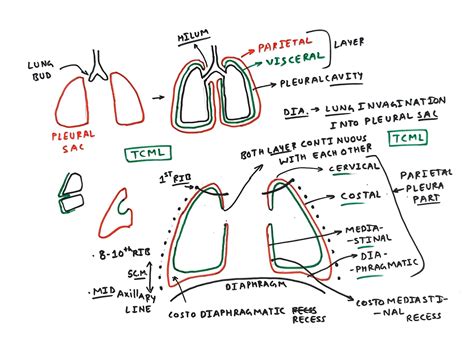 HILUM
PARIETAL
VISCERAL
LAYER
LUNG
BUD
PLEURAL CAVITY
DIA. → LUNG INVAGINATION
INTO PLEURAL SAC
PLEURAL
SAC
TCML
TCML
BOTH LAYER CONTINUOUS
WITH EACH OTHER
1ST RIB
CERVICAL
PARIETAL
PLEURA
PART
COSTAL
MEDIA-
STINAL
DIA-
PHRAGMATIC
8-10th RIB
5CM
MID Axillary
LINE
DIAPHRAGM
COSTO DIAPHRAGMATIC
RECESS
COSTOMEDIASTI-
NAL RECESS